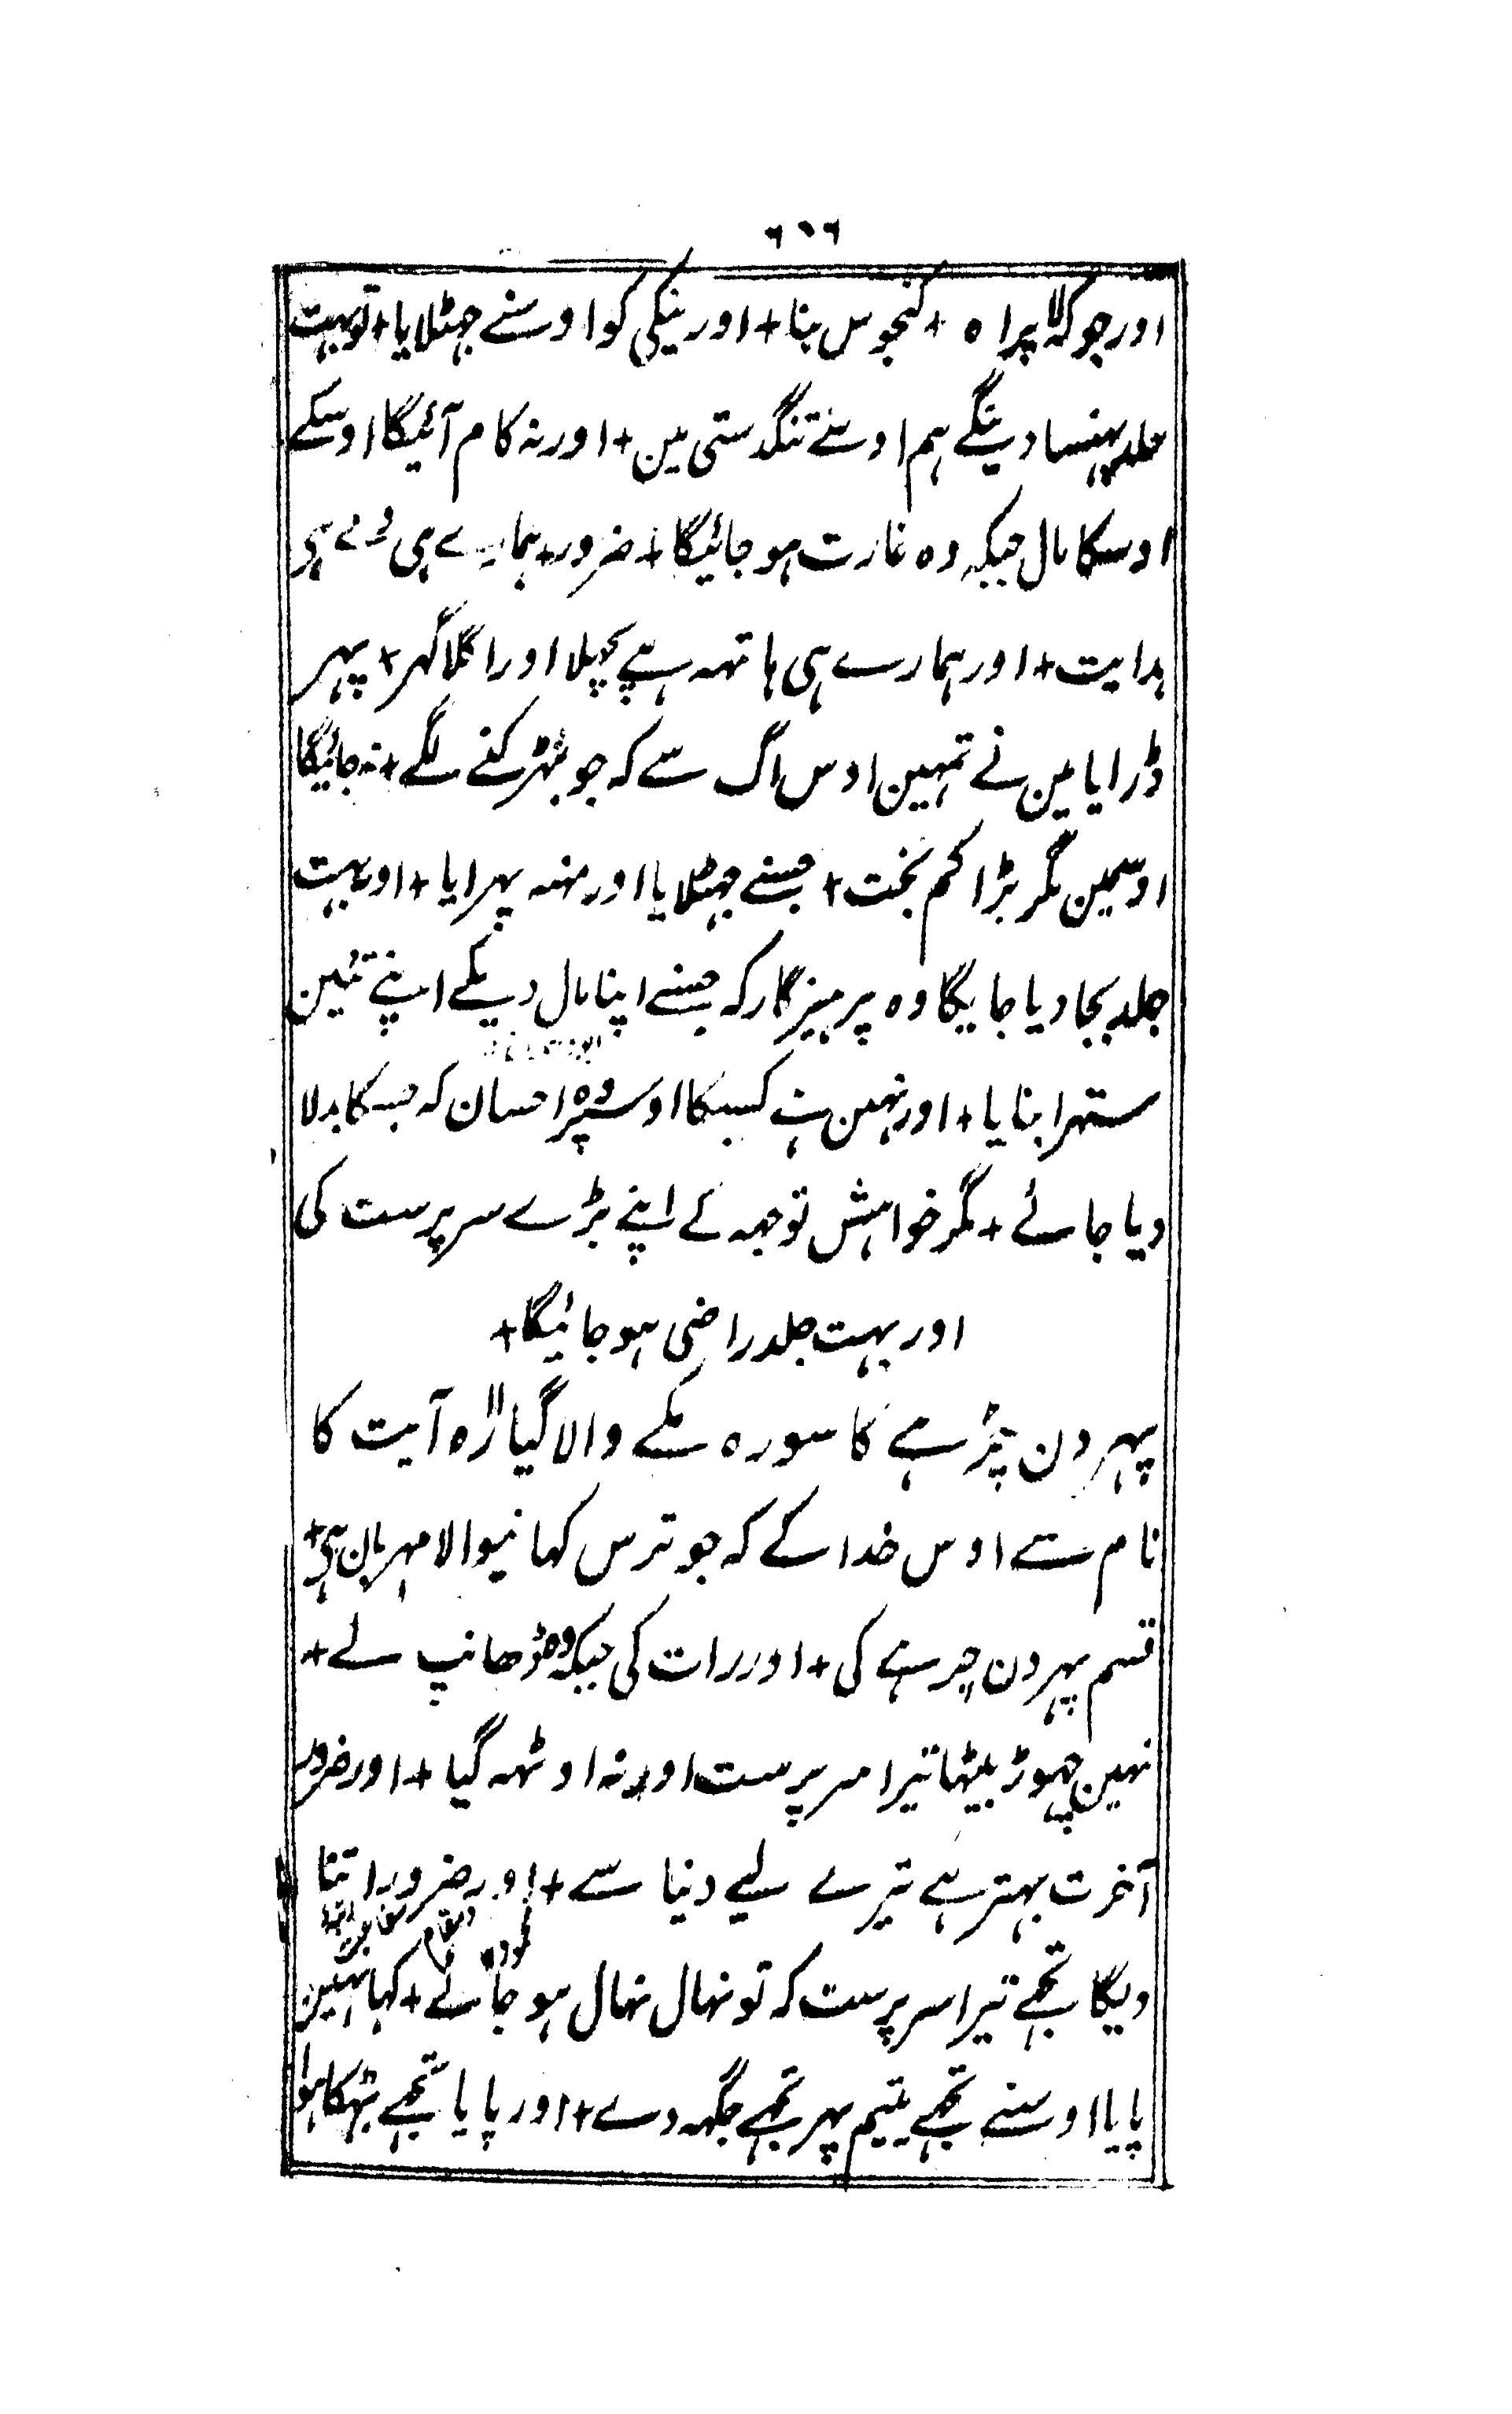 ٦٠٦
اور جو کہ لاپرا ہ + کنجوس بنا + اور نیکی کو اوسنے جہٹلایا + تو بہت
جلد پہنسا دینگے ہم اوسے تنگدستی مین + اور نہ کام آئیگا اوسکے
اوسکا مال جبکہ وہ غارت ہو جائیگا + ضرور ہمارے ہی ذمے ہی
ہدایت + اور ہمارے ہی ہاتہہ ہے پچہلا اور اگلا گہر + پہر
ڈرایا مین نے تمہین اوس اگ سے کہ جو بہڑکنے لگے + نہ جائیگا
اوسمین مگر بڑا کم بخت + جسنے جہٹلایا اور منہ پہرایا + اور بہت
جلد بچا دیا جایگا وہ پرہیزگار کہ جسنے اپنا مال دیکے اپنے تئین
ستہرا بنایا + اور نہین ہے کسیکا اوسپر وہ احسان کہ جسکا بدلا
دیا جائے + مگر خواہش توجہہ کے اپنے بڑے سرپرست کی
اور بہت جلد راضی ہو جائیگا +
پہر دن چڑہے کا سورہ مکے والا گیارہ ١١ آیت کا
نام سے اوس خدا کے کہ جو ترس کہانیوالا مہربان ہی +
قسم پہر دن چڑہے کی + اور رات کی جبکہ وہ ڈھانپ لے +
نہین چہوڑ بیٹہا تیرا سرپرست اور نہ اوٹہہ گیا + اور ضرور
آخرت بہتر ہے تیرے لیے دنیا سے + اور ضرور اتنا
دیگا تجہے تیرا سرپرست کہ تو نہال نہال ہو جائے + کیا نہین
پایا اوسنے تجہے یتیم پہر تجہے جگہہ دے + اور پایا تجہے بہٹکا ہوا